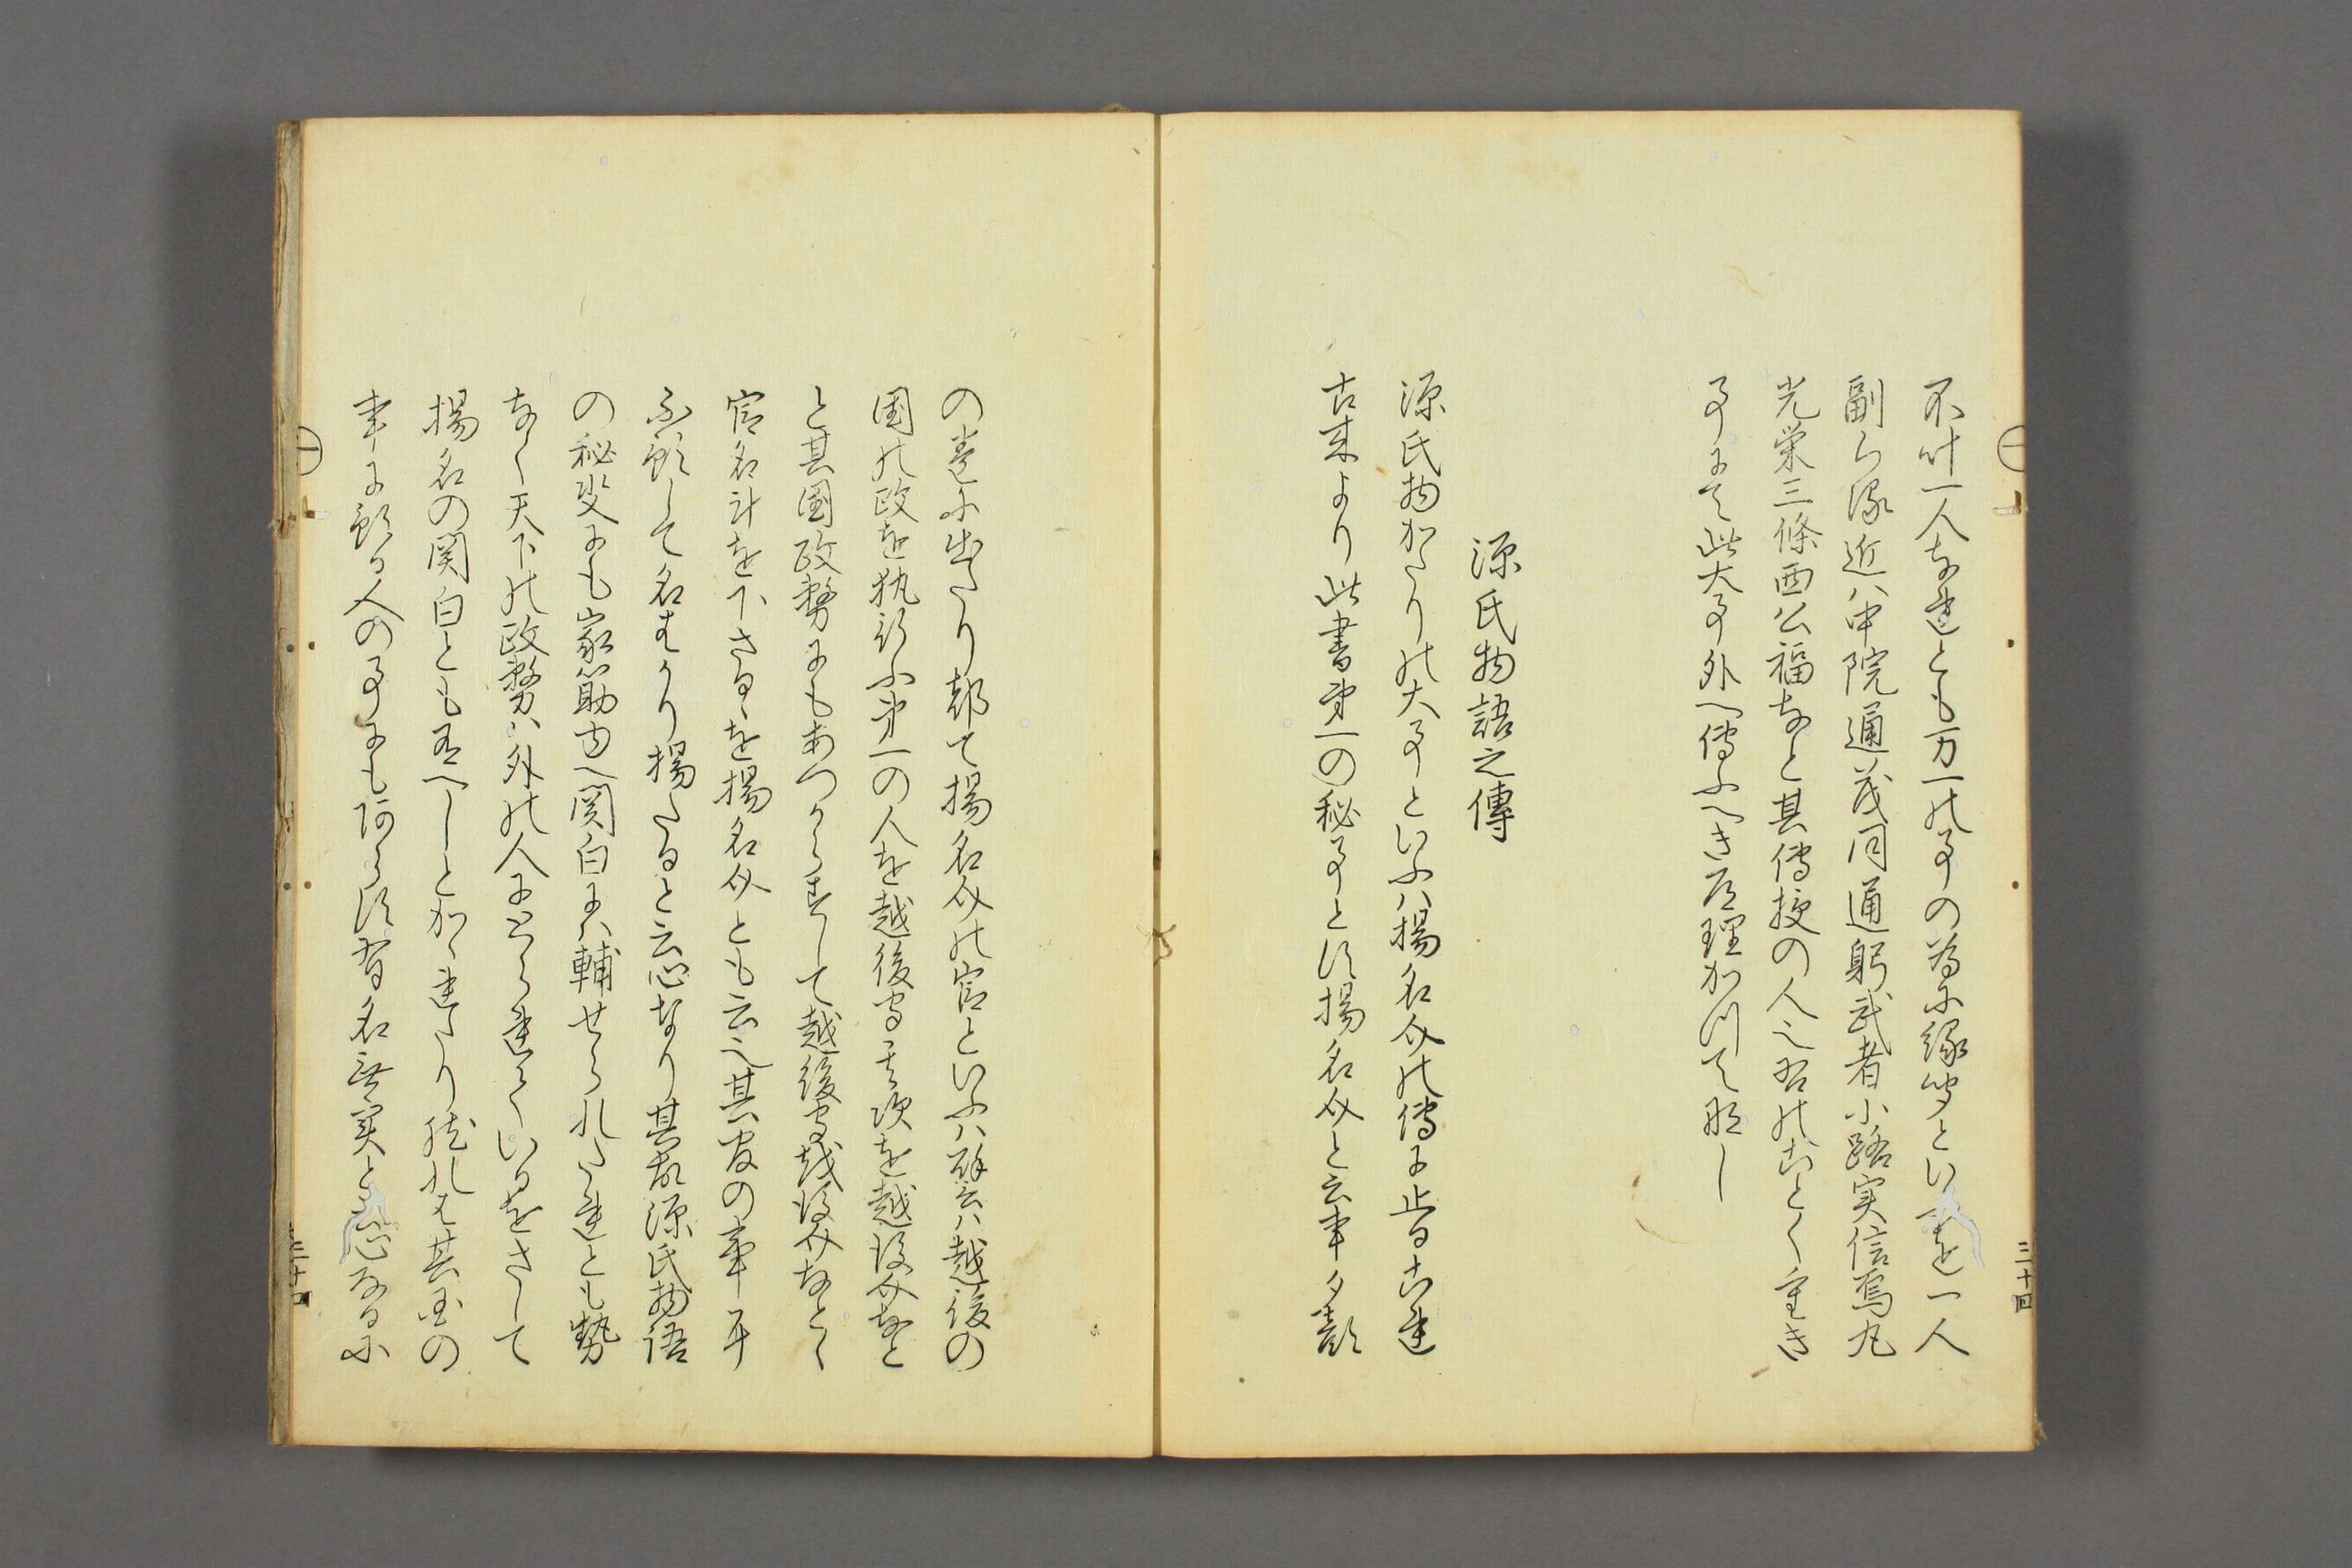 不叶一人なれとも万一の事の為に縁にといを一人
副らる近八中院通茂同通躬武者小路実信烏丸
光栄三條西公福なと其傳授の人也右のことく重き
事にて此大事外へ傳ふへき道理かつて那し
源氏物語之傳
源氏物かたりの大事といふハ揚名介の傳に止るこれ
古来より此書第一の秘事とす揚名介と云事夕顔
の巻に出たり都て揚名介の官といふハ譬ハ越後の
国の政を執行ふ第一の人を越後守其次を越後介なと
と其国政務にもあつからすして越後守越後介なとゝ
官名計を下さるゝを揚名介とも云也其官の事耳
不預して名はかり揚たると云心なり其故源氏物語
の秘受にも家筋由へ関白にハ輔せられたれとも勢
なく天下の政務ハ外の人にとられているをさして
揚名の関白とも可有へしとかゝれたり然れは其国の
事に預る人の事にも阿らす有名無実と云心なるに
三十四
三十四